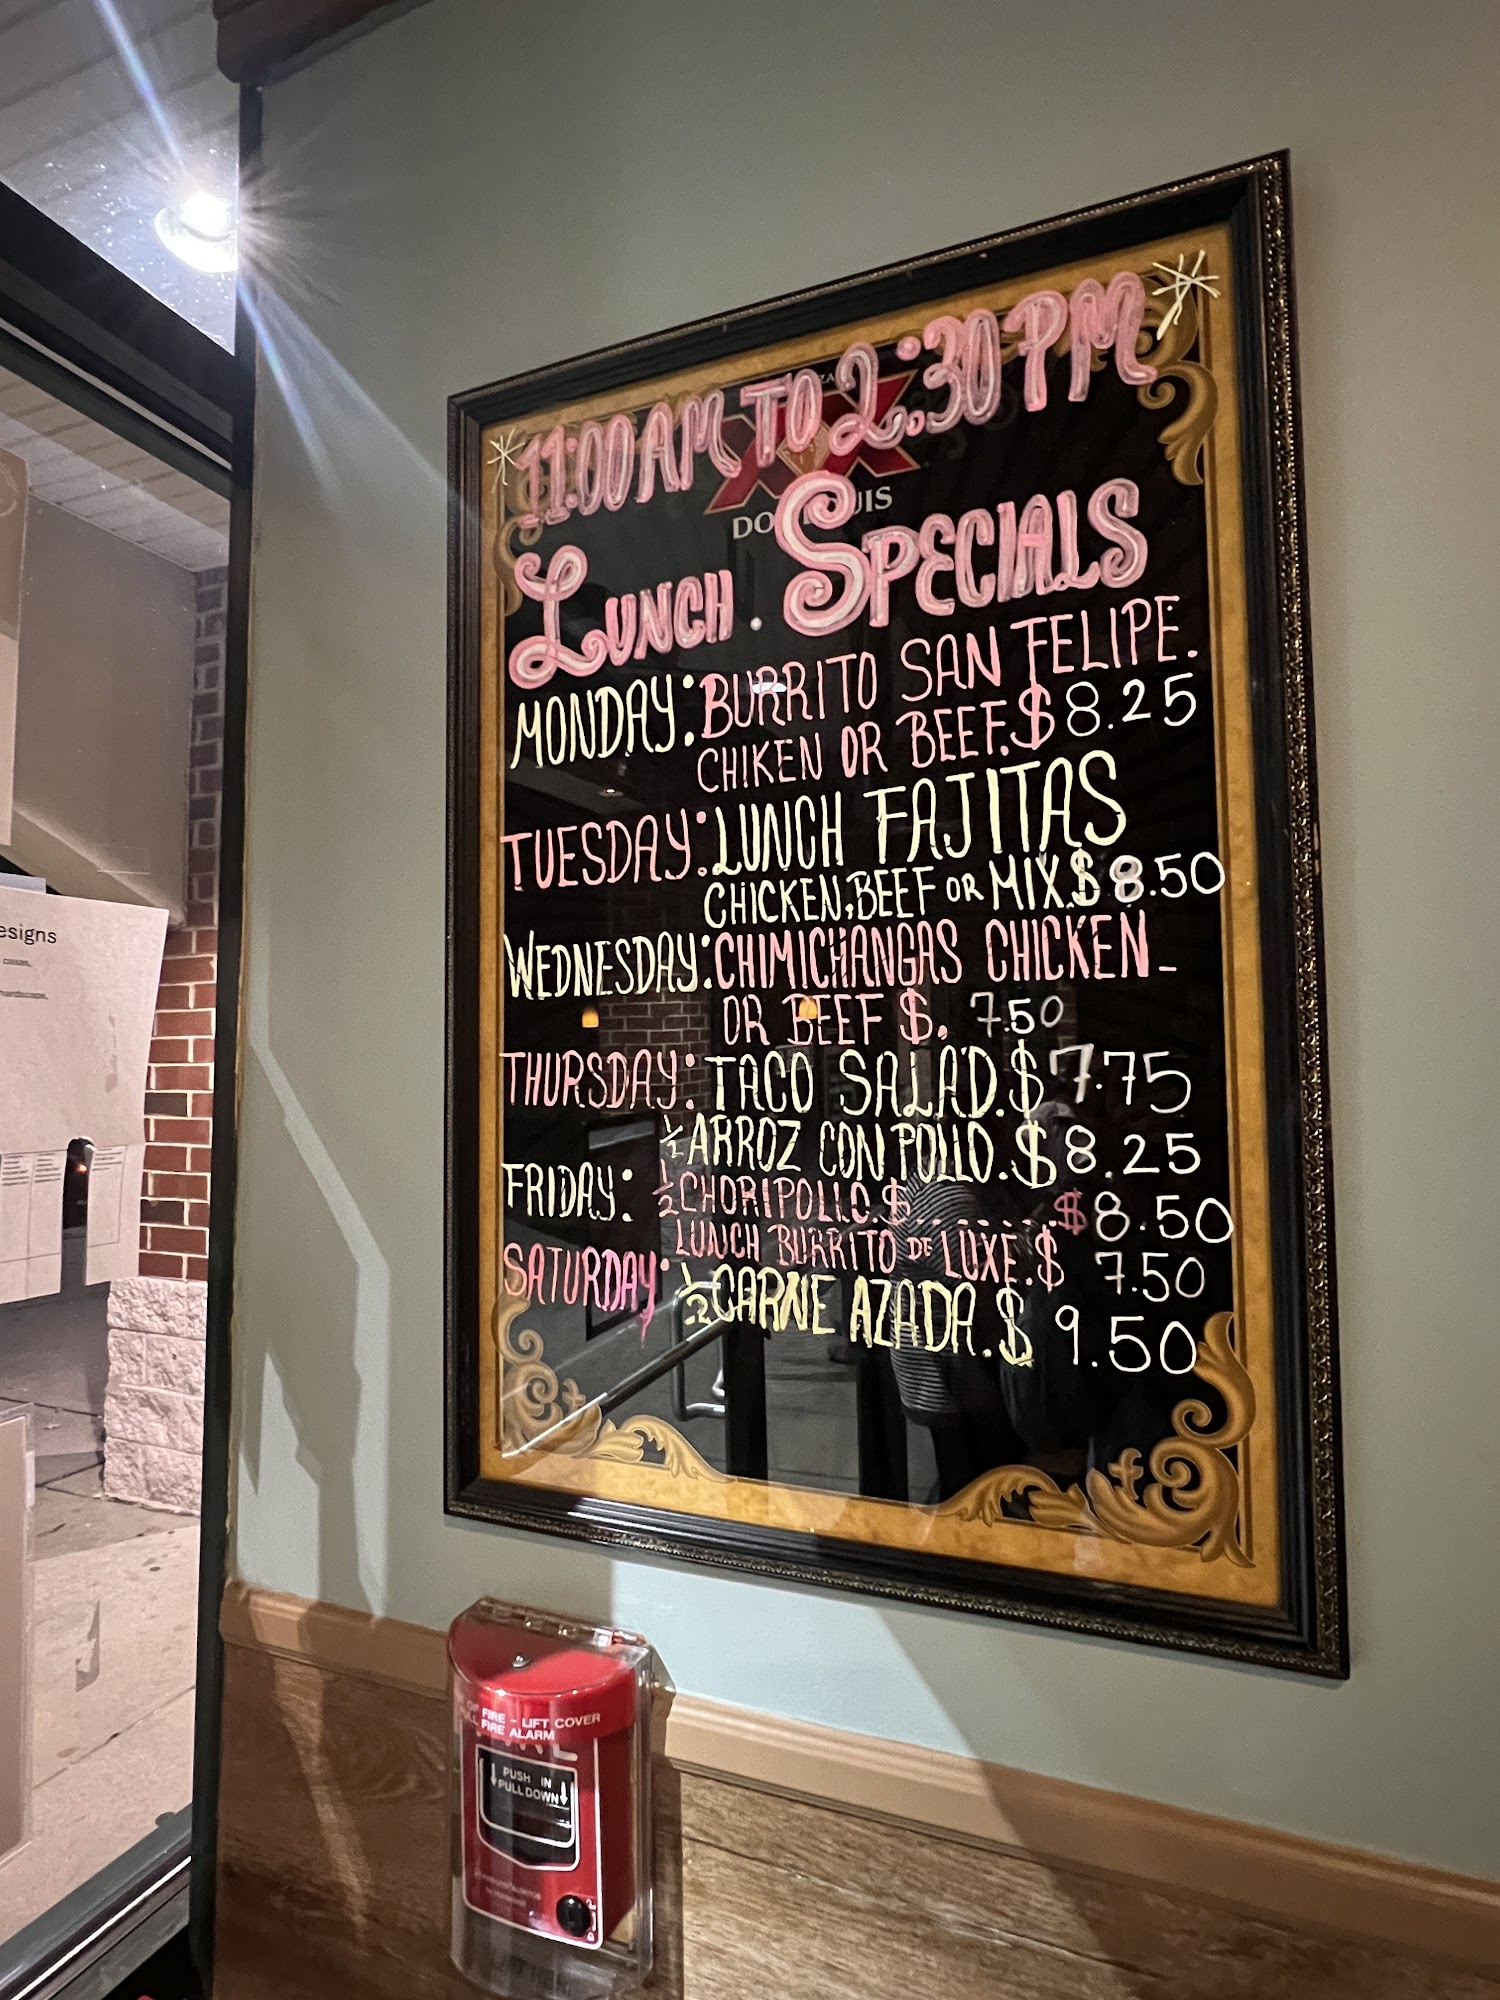 11:00 AM TO 2:30 PM
XX
LUNCH. SPECIALS
MONDAY: BURRITO SAN FELIPE.
CHIKEN OR BEEF. $ 8.25
TUESDAY: LUNCH FAJITAS
CHICKEN, BEEF OR MIX. $ 8.50
WEDNESDAY: CHIMICHANGAS CHICKEN-
OR BEEF $. 7.50
THURSDAY: TACO SALAD. $ 7.75
½ ARROZ CON POLLO. $ 8.25
FRIDAY: ½ CHORIPOLLO. $....... $ 8.50
LUNCH BURRITO DE LUXE. $ 7.50
SATURDAY: ½ CARNE AZADA. $ 9.50
esigns
OF FIRE - LIFT COVER
FIRE ALARM
PUSH IN
PULL DOWN